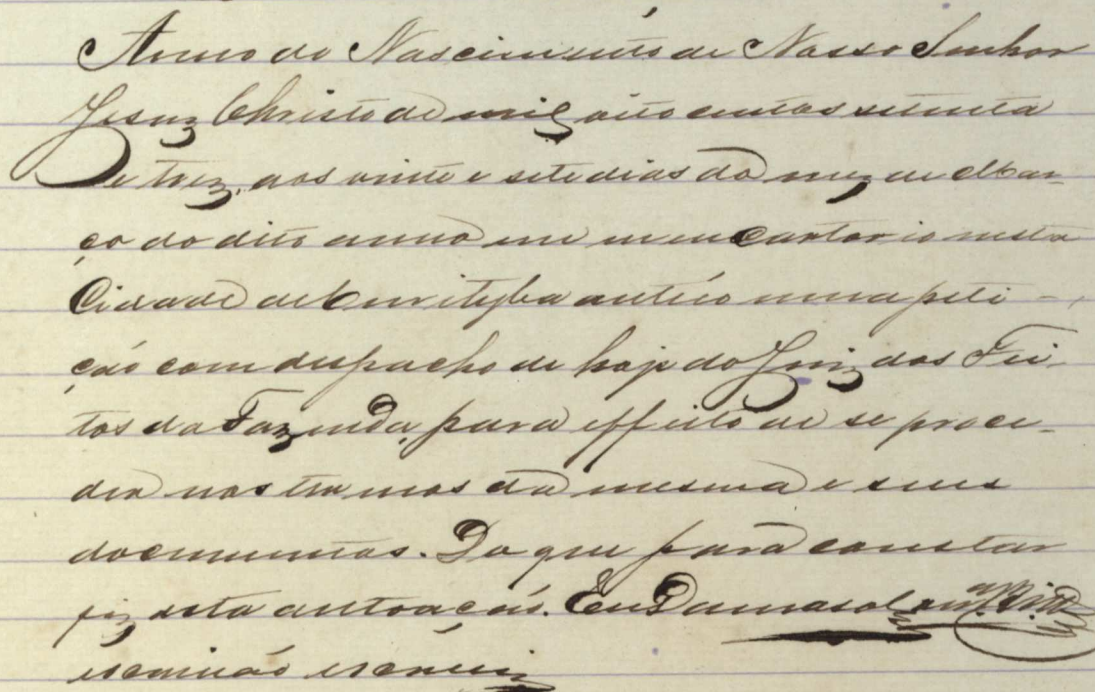 Anno do Nascimento de Nosso Senhor
Jesuz Christo de mil oito centos setenta
e trez, aos vinte e sete dias do mez de Mar-
ço do dito anno em meu cartorio nesta
Cidade de Curityba autúo uma peti-
ção com despacho de hoje do Juiz dos Fei-
tos da Fazenda, para effeito de se proce-
der nos termos da mesma e seus
documentos. Do que para constar
fiz esta autoação. Eu Damaso
escrivão escrevi